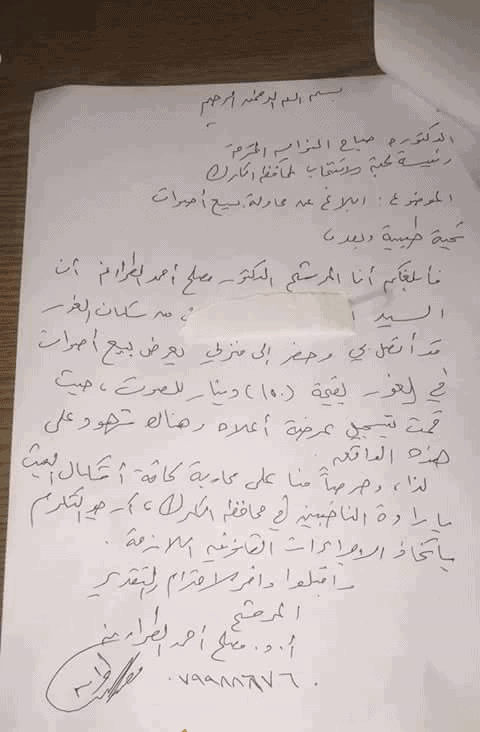 بسم الله الرحمن الرحيم
الدكتوره صباح النوايسه المحترمة
رئيسة لجنة الانتخاب لمحافظة الكرك
الموضوع: ابلاغ عن محاولة بيع أصوات
تحية طيبة وبعد،
فأبلغكم أنا المرشح الدكتور مصلح أحمد الطراونه أن
السيد من سكان الغور
قد أتصل بي وحضر إلى منزلي يعرض بيع أصوات
في الغور بقيمة (١٥٠) دينار للصوت، حيث
قمت بتسجيل عرضة أعلاه وهناك شهود على
هذه الواقعه
لذا، وحرصاً منا على محاربة كافة أشكال العبث
بارادة الناخبين في محافظة الكرك، أرجو التكرم
بأتخاذ الاجراءات القانونيه اللازمة.
واقبلوا وافر الاحترام والتقدير
المرشح
أ.د. مصلح أحمد الطراونه